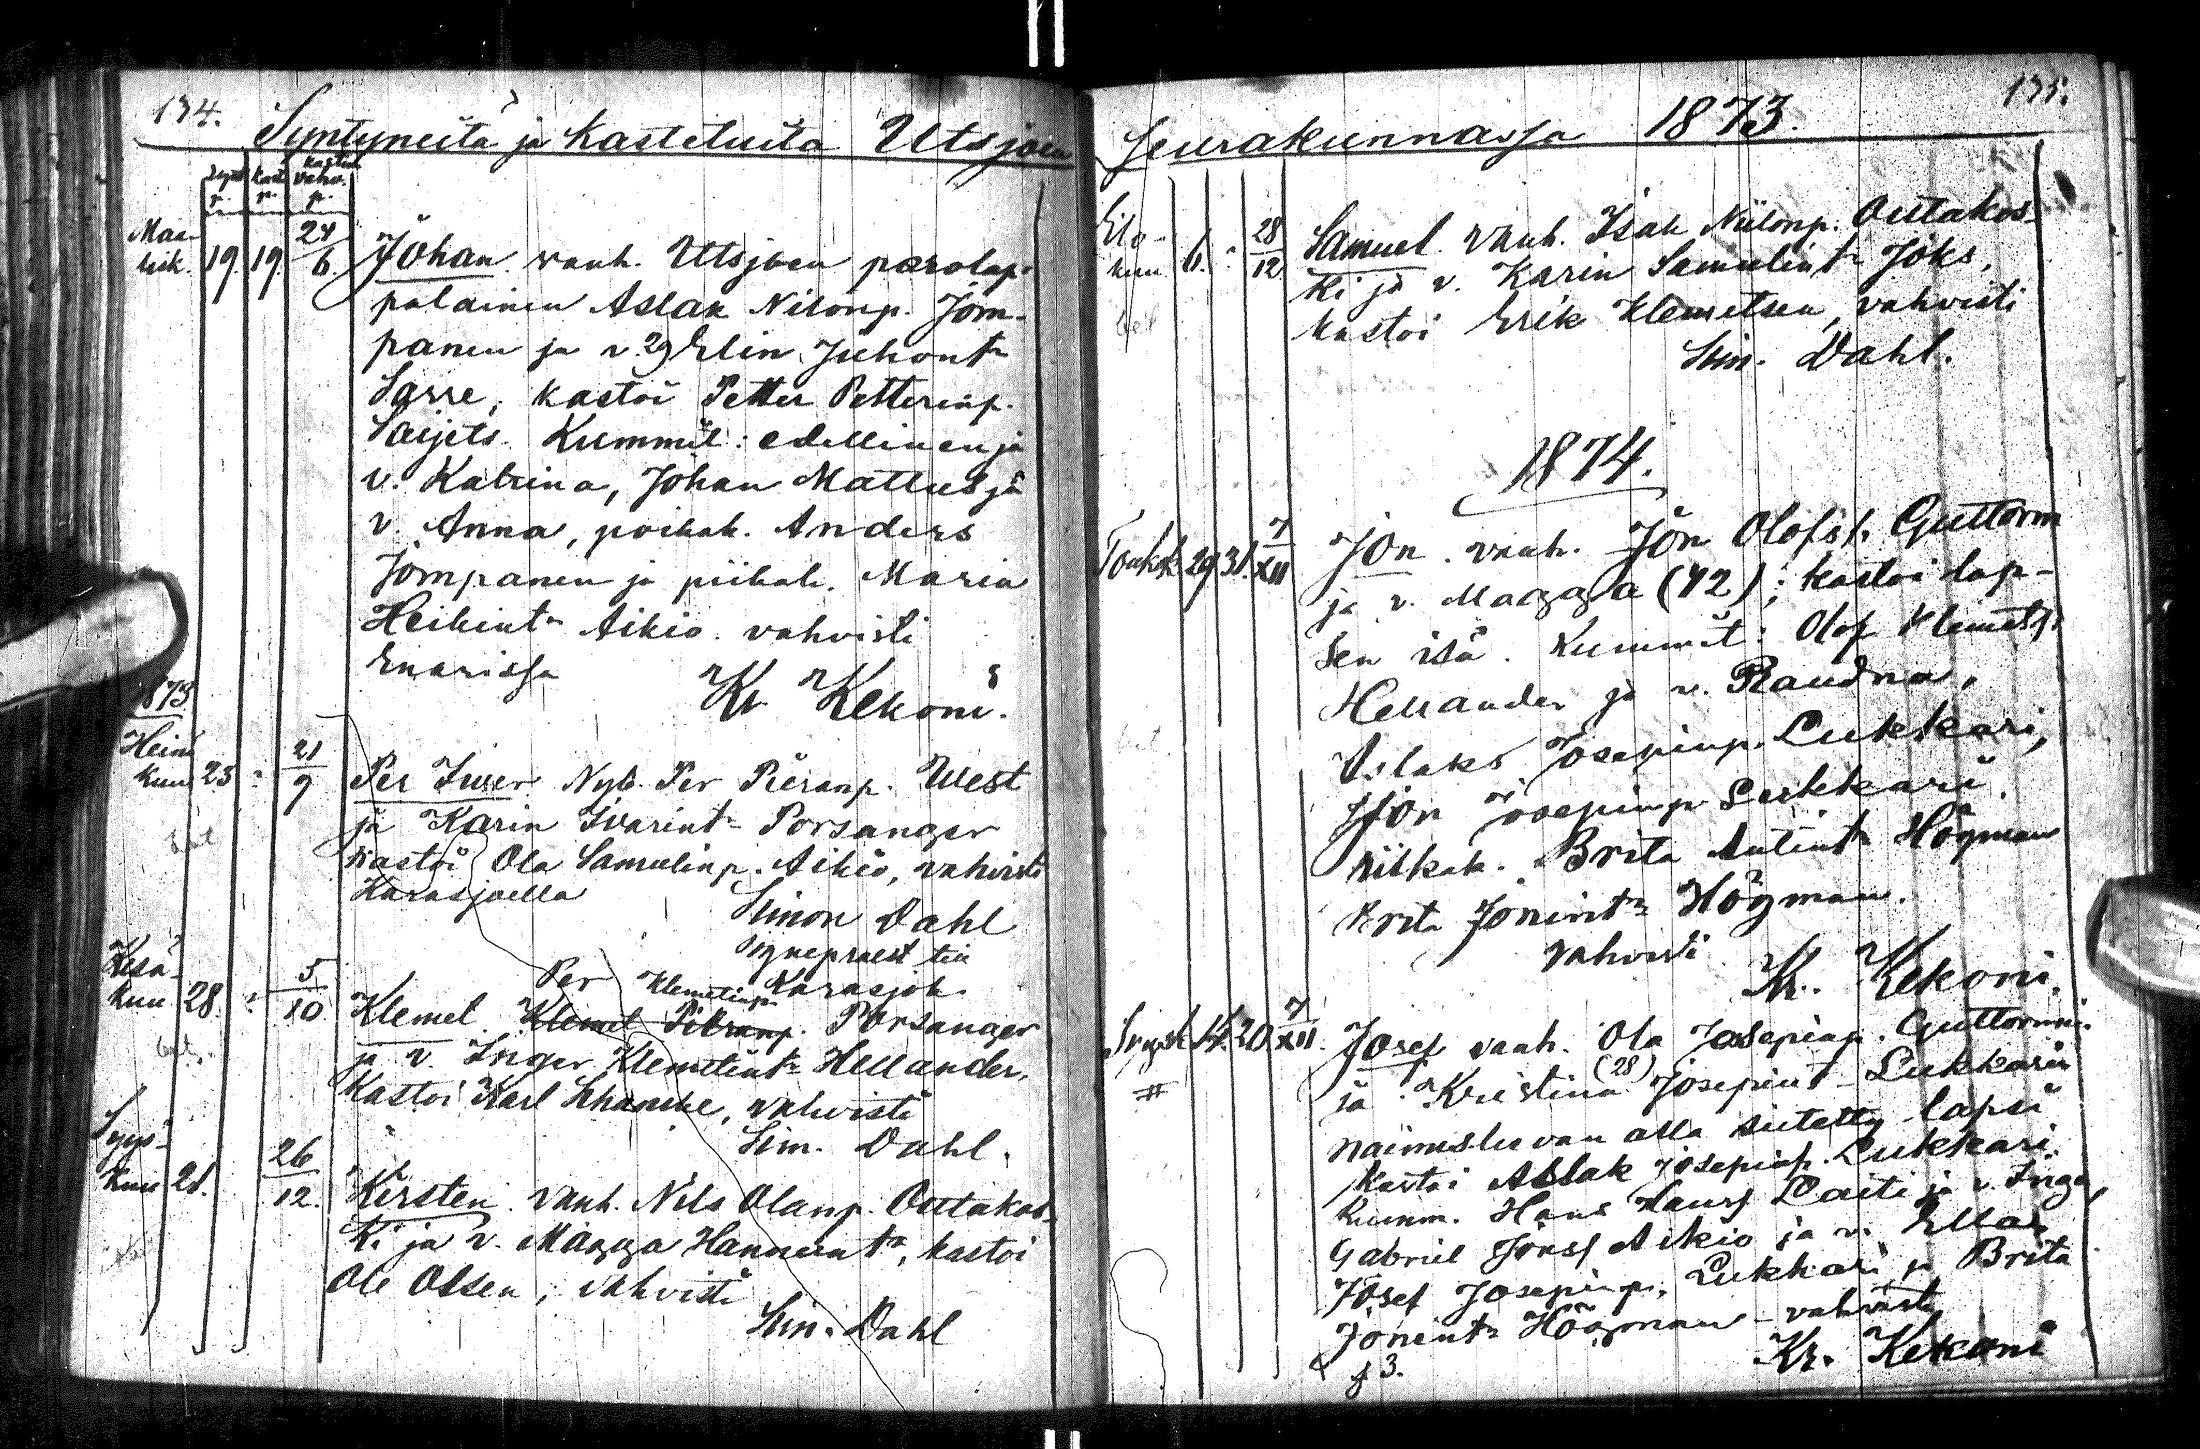 134.
Syntyneitä ja Kastetuita Utsjoen
Synt. p. Kast. p. Kasteen vahv. p.
Maa-
lisk. 19. 19. 24/6. Johan. vanh. Utsjoen porolap-
palainen Aslak Nilonp. Jom-
panen ja v. 29 Elin Juhont.
Sarre, kastoi Petter Petterinp.
Saijets. Kummit: edellinen ja
v. Katrina, Johan Mattus ja
v. Anna, poikah. Anders
Jompanen ja piikah. Maria
Heikint. Aikio. vahvisti
Enarissa
Kr. Kekoni.
1873.
Heinä
kuu 23 " 21/9 Per Iwer Nyb. Per Pieranp. West
ja Karin Ivarint. Porsanger
kastoi Ola Samulinp. Aikio, vahvisti
Karasjoella
Simon Dahl
Sognepraest til
Karasjok.
Kesä-
kuu 28. " 5/10 Klemet. Klemet Pieranp. Per Klemetinp. Porsanger
ja v. Inger Klemetint. Hellander,
kastoi Karl Schanche, vahvisti
Sim. Dahl.
Syys-
kuu 21. 26/12. Kirsten. vanh. Nils Olanp. Outakos-
ki ja v. Magga Hannunt., kastoi
Ole Olsen, vahvisti
Sim. Dahl
135.
Seurakunnassa 1873.
Elo-
kuu 6. " 28/12 Samuel. vanh. Isak Niilonp. Outakos-
ki ja v. Karin Samulint. Joks,
kastoi Erik Klemetsen, vahvisti
Sim. Dahl.
1874.
Toukok. 29 31. 7/XII Jon. vanh. Jon Olofsp. Guttorm
ja v. Magga (42); kastoi lap-
sen isä. Kummit: Olof Klemetsp.
Hellander ja v. Raudna,
Aslaks Josepinp. Lukkari,
Jon Josepinp. Lukkari,
piikah. Brita Antint. Högman
Brita Jonint. Högman.
vahvisti
Kr. Kekoni.
Syysk. 14. 20. 7/XII. Josef vanh. Ola Josepinp. Guttormin
ja Kristina (28) Josepint. Lukkarin
naimisluvan alla siitetty lapsi
kastoi Aslak Josepinp. Lukkari.
Kumm. Hans Hansp. Laiti ja v. Inga,
Gabriel Jonsp. Aikio ja v. Ella,
Josef Josepinp. Lukkari ja Brita
Jonint. Högman - vahvisti
Kr. Kekoni
f 3.